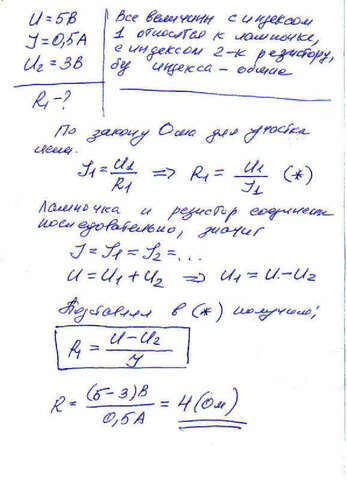 U = 5В
J = 0,5А
U₂ = 3В
R₁ - ?
Все величины с индексом
1 относятся к лампочке,
с индексом 2-к резистору,
без индекса - общие
По закону Ома для участка
цепи.
J₁ = U₁/R₁ ⇒ R₁ = U₁/J₁ (*)
Лампочка и резистор соединены
последовательно, значит
J = J₁ = J₂ = ...
U = U₁ + U₂ ⇒ U₁ = U - U₂
Подставляя в (*) получим:
R₁ = (U - U₂)/J
R = (5-3)В/0,5А = 4 (Ом)